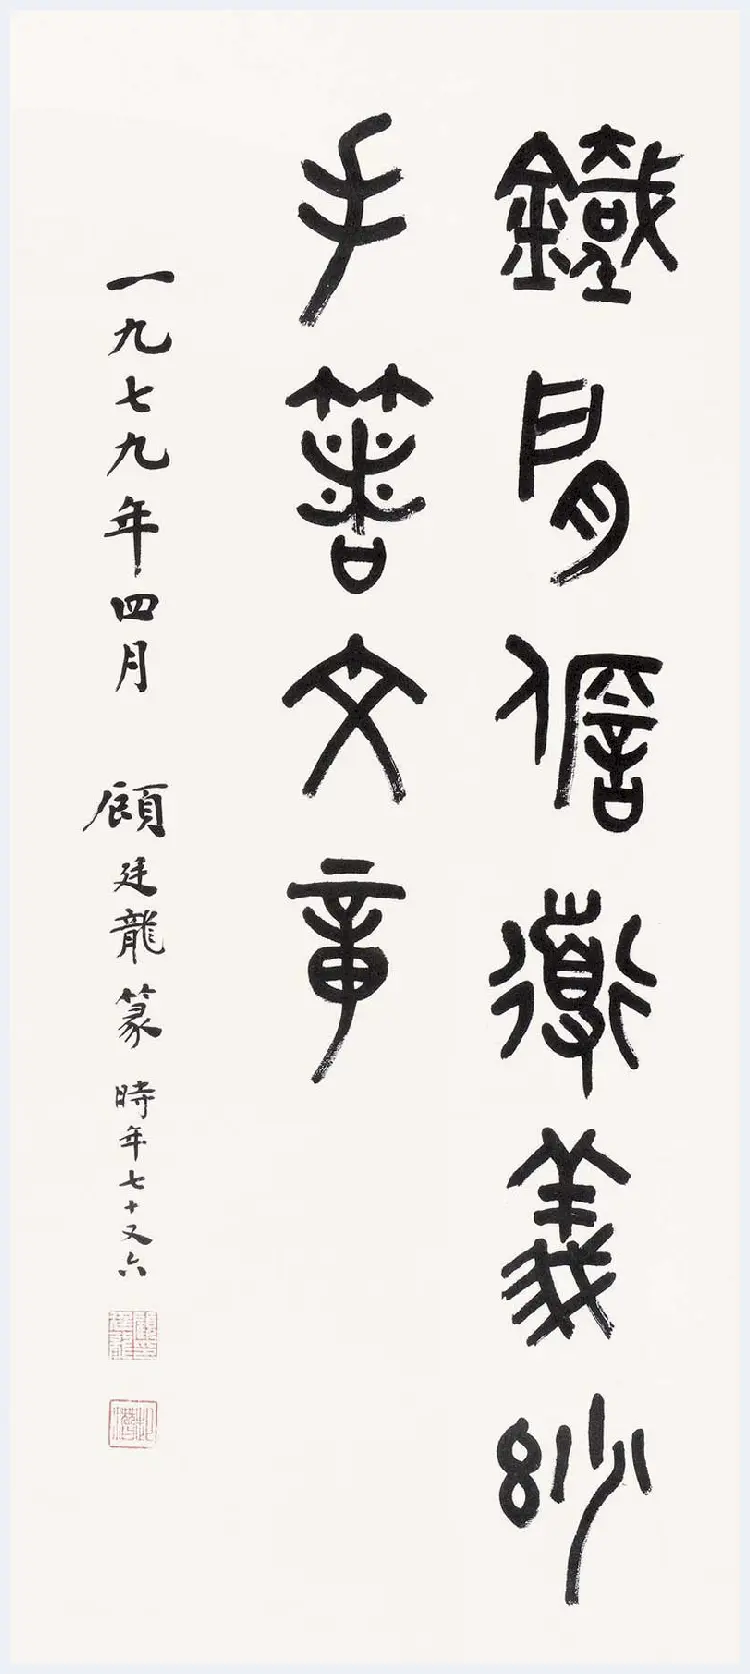 鐵肩儋道義玅
手箸文章
一九七九年四月 顧廷龍篆 時年七十又六
起潛